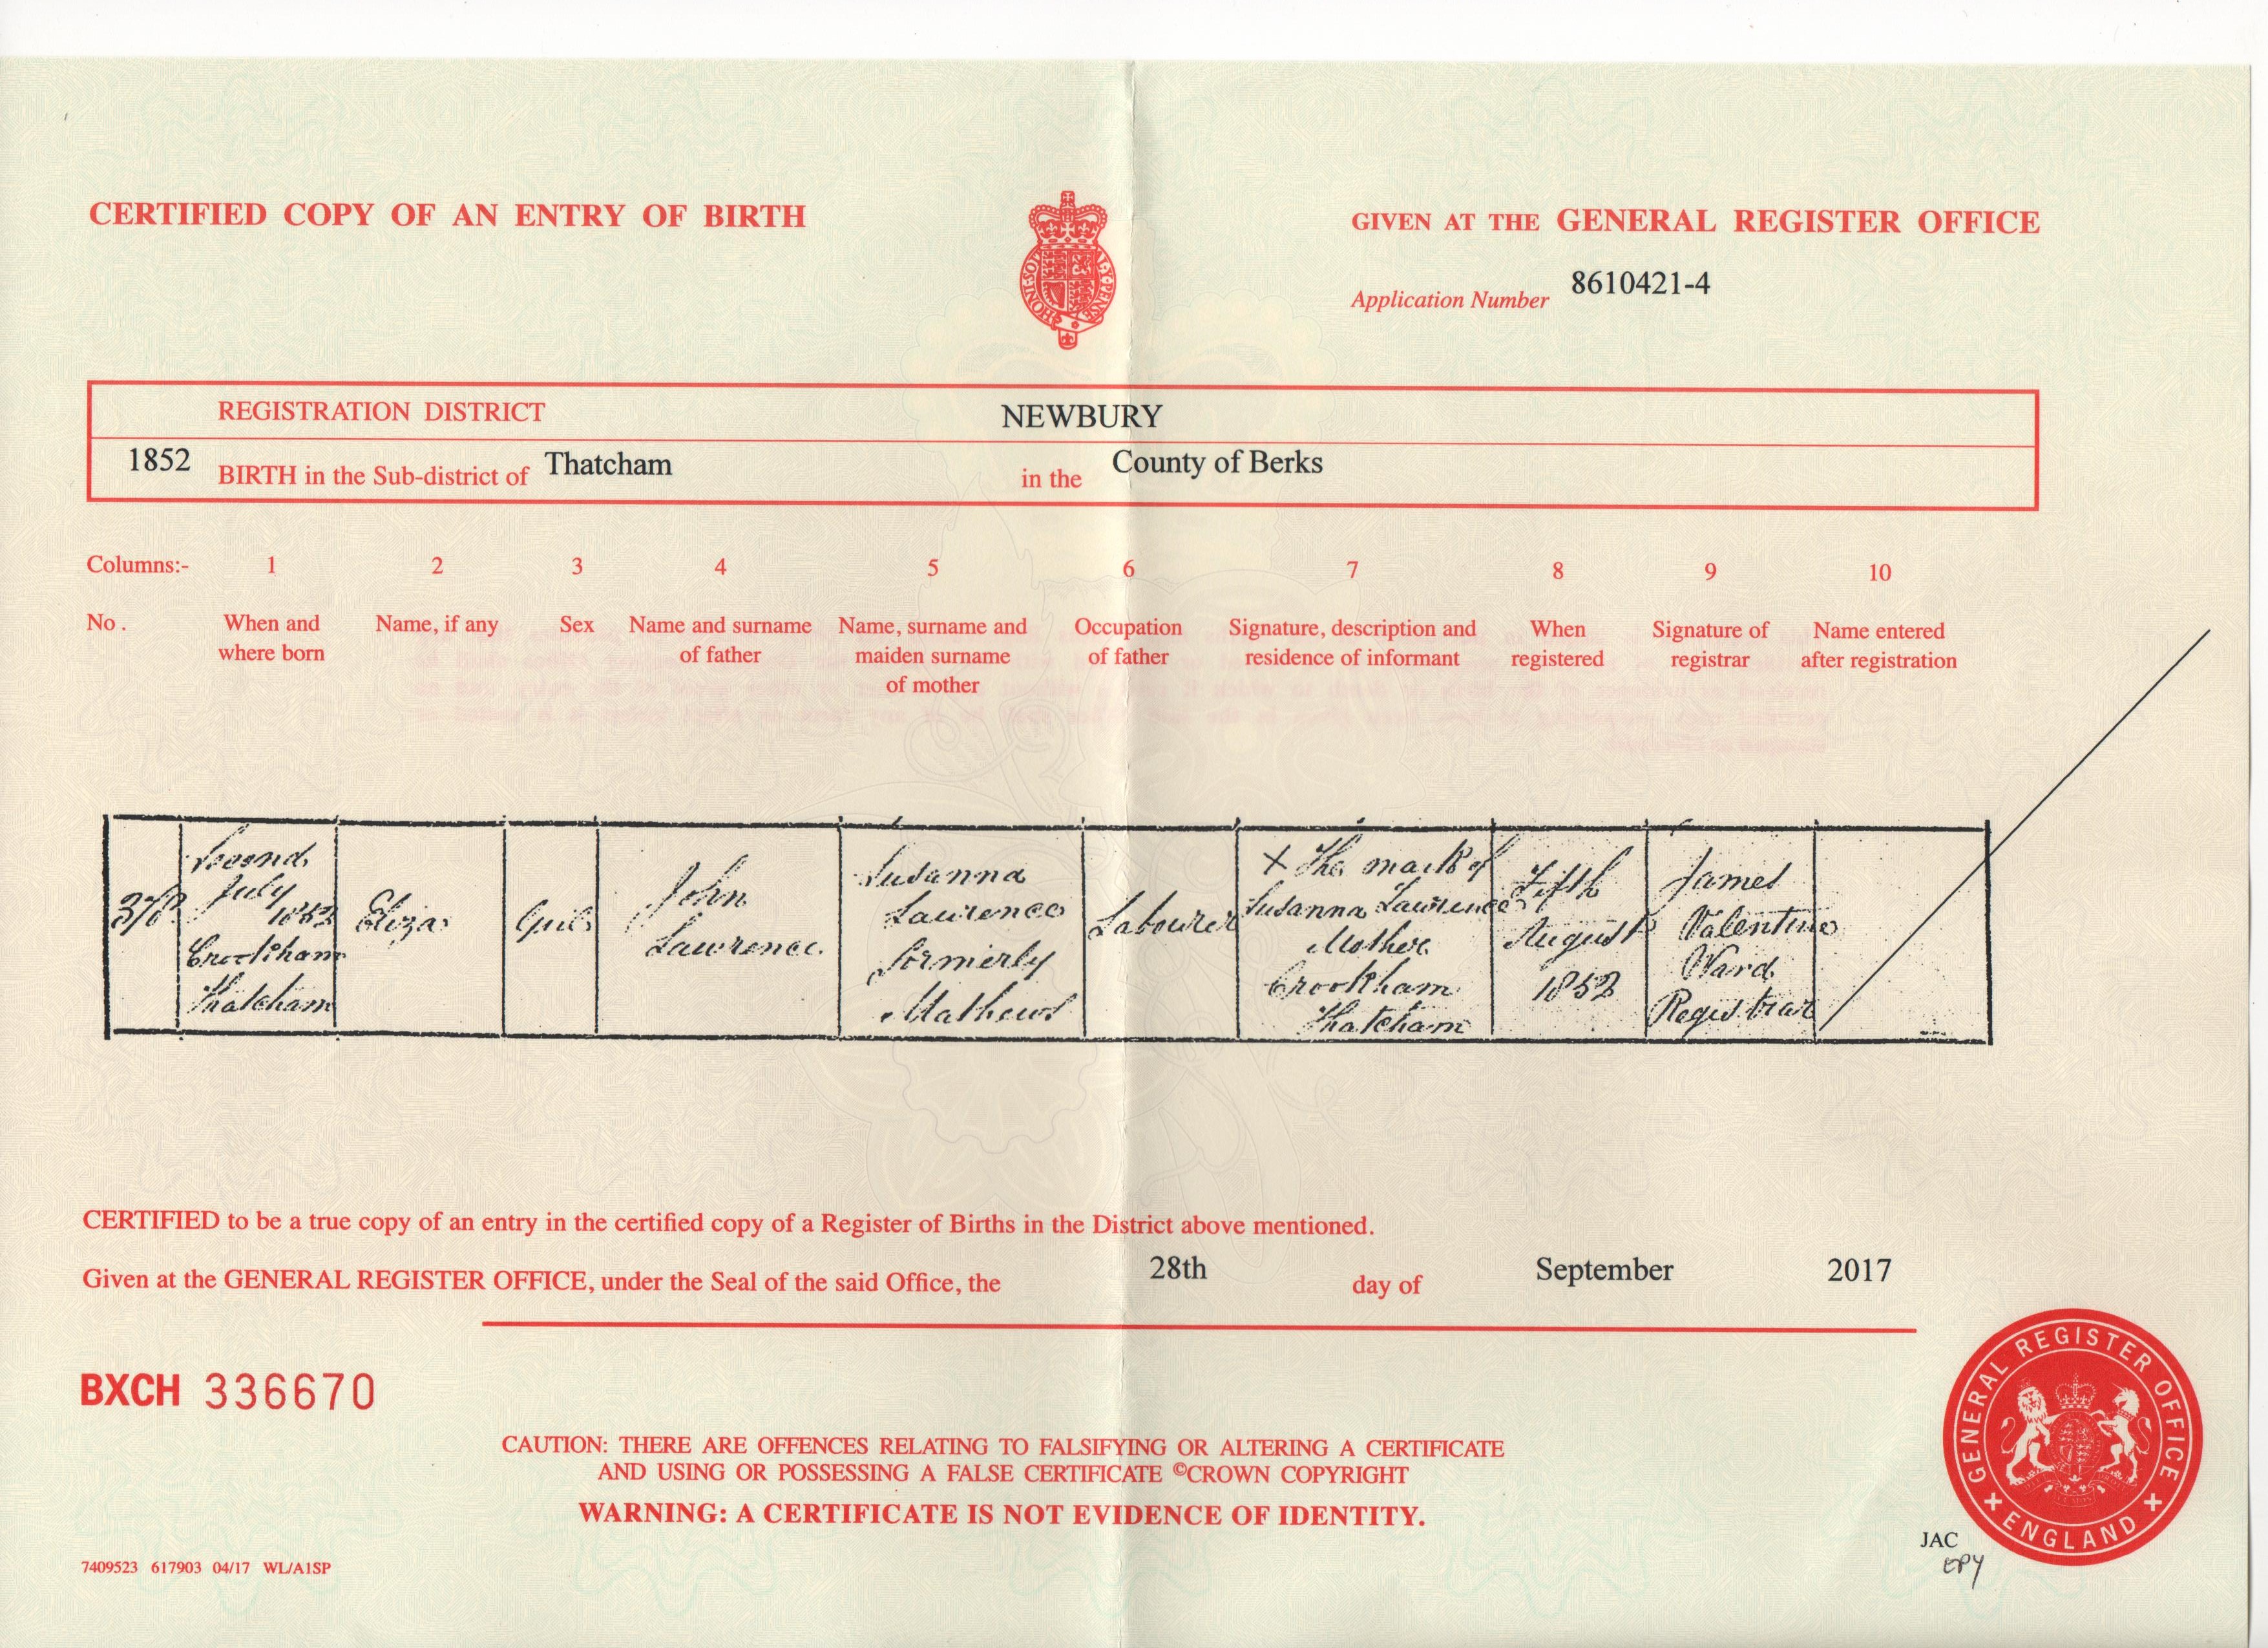 CERTIFIED COPY OF AN ENTRY OF BIRTH
GIVEN AT THE GENERAL REGISTER OFFICE
Application Number 8610421-4
REGISTRATION DISTRICT NEWBURY
1852 BIRTH in the Sub-district of Thatcham in the County of Berks
Columns:- 1 2 3 4 5 6 7 8 9 10
No. When and where born
Name, if any
Sex
Name and surname of father
Name, surname and maiden surname of mother
Occupation of father
Signature, description and residence of informant
When registered
Signature of registrar
Name entered after registration
Second
July
1852
Crookham
Thatcham
Eliza
Girl
John
Lawrence
Susanna
Lawrence
formerly
Mathews
Labourer
X The mark of
Susanna Lawrence
Mother
Crookham
Thatcham
Fifth
August
1852
James
Valentine
Ward
Registrar
CERTIFIED to be a true copy of an entry in the certified copy of a Register of Births in the District above mentioned.
Given at the GENERAL REGISTER OFFICE, under the Seal of the said Office, the 28th day of September 2017
BXCH 336670
CAUTION: THERE ARE OFFENCES RELATING TO FALSIFYING OR ALTERING A CERTIFICATE
AND USING OR POSSESSING A FALSE CERTIFICATE ©CROWN COPYRIGHT
WARNING: A CERTIFICATE IS NOT EVIDENCE OF IDENTITY.
GENERAL REGISTER OFFICE
ENGLAND
JAC
7409523 617903 04/17 WL/A1SP